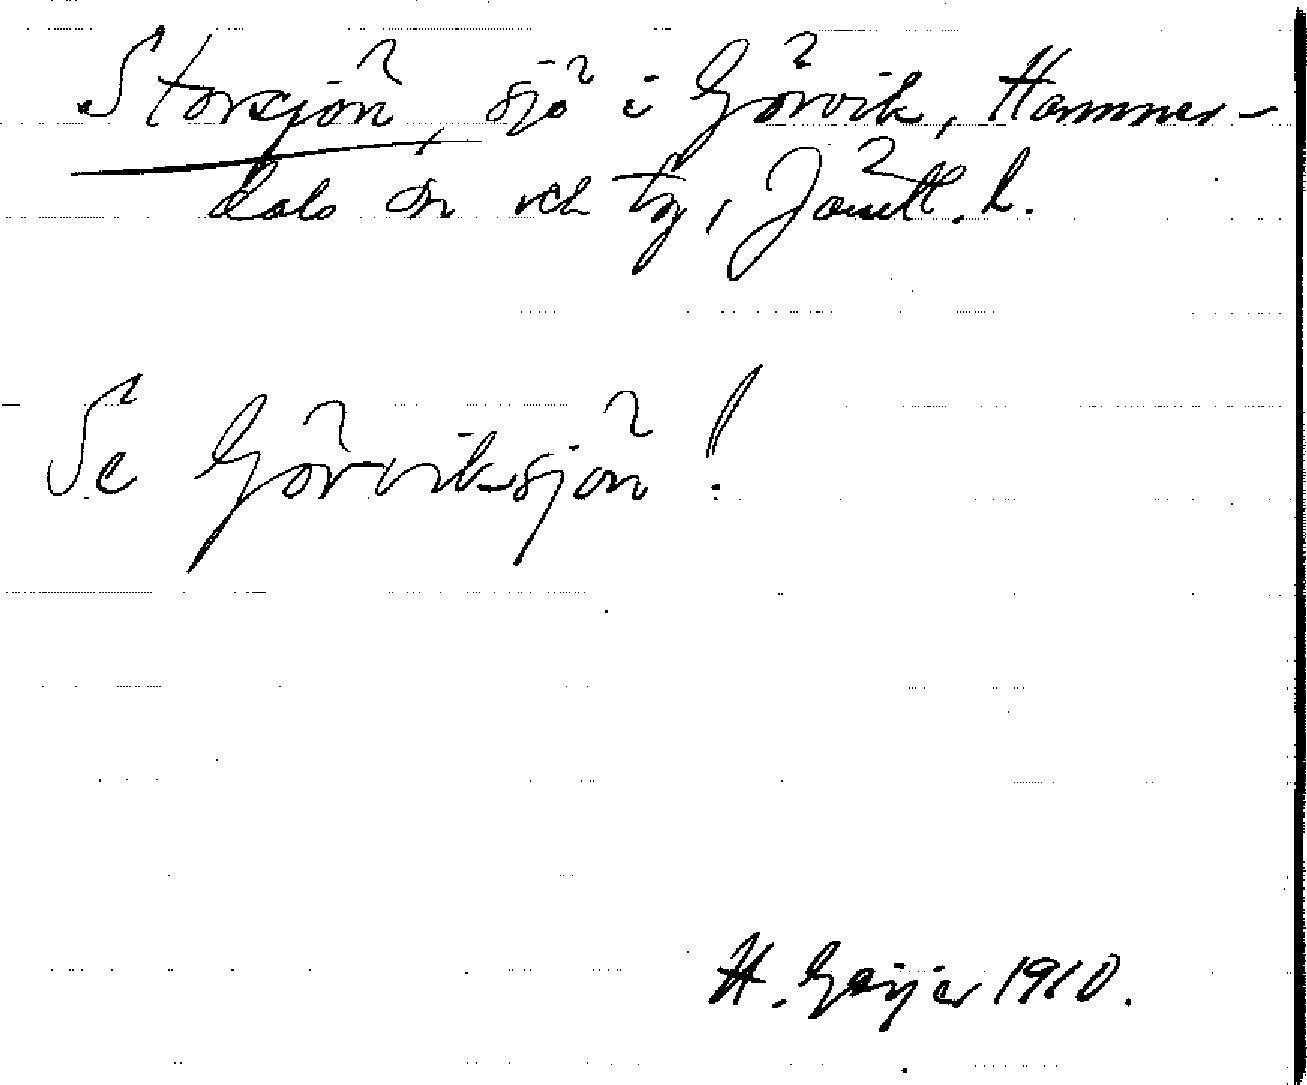 Storsjön, sjö i Görvik, Hammer-
dals sn och tg, Jämtl. l.
Se Görviksjön!
H. Geijer 1910.